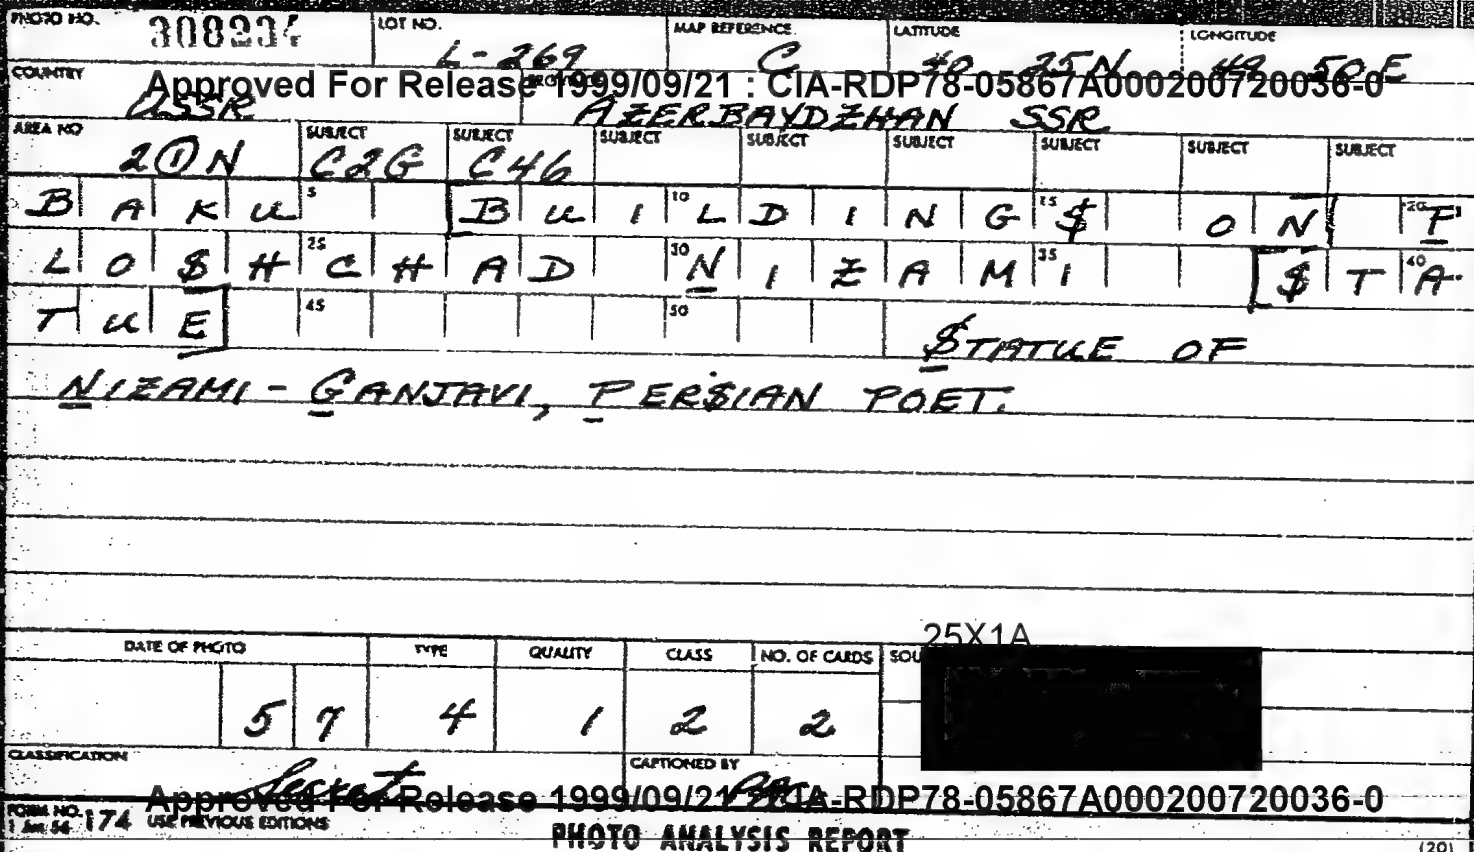 PHOTO NO. 308234 LOT NO. L-269 MAP REFERENCE C LATITUDE 40 25N LONGITUDE 49 50E
Approved For Release 1999/09/21 : CIA-RDP78-05867A000200720036-0
COUNTRY USSR AZERBAYDZHAN SSR
AREA NO 2①N SUBJECT C2G SUBJECT C46 SUBJECT SUBJECT SUBJECT SUBJECT SUBJECT SUBJECT
BAKU 5 BUILDING 10 15 $ ON 20 F
LO$H 25 CHAD 30 NIZAMI 35 $TA 40
TUE 45 50 $TATUE OF
NIZAMI-GANJAVI, PER$IAN POET.
25X1A
DATE OF PHOTO TYPE QUALITY CLASS NO. OF CARDS SOU
57 4 1 2 2
CLASSIFICATION Secret CAPTIONED BY
Approved For Release 1999/09/21 : CIA-RDP78-05867A000200720036-0
FORM NO. 174 USE PREVIOUS EDITIONS
1 Jun 54
PHOTO ANALYSIS REPORT (20)